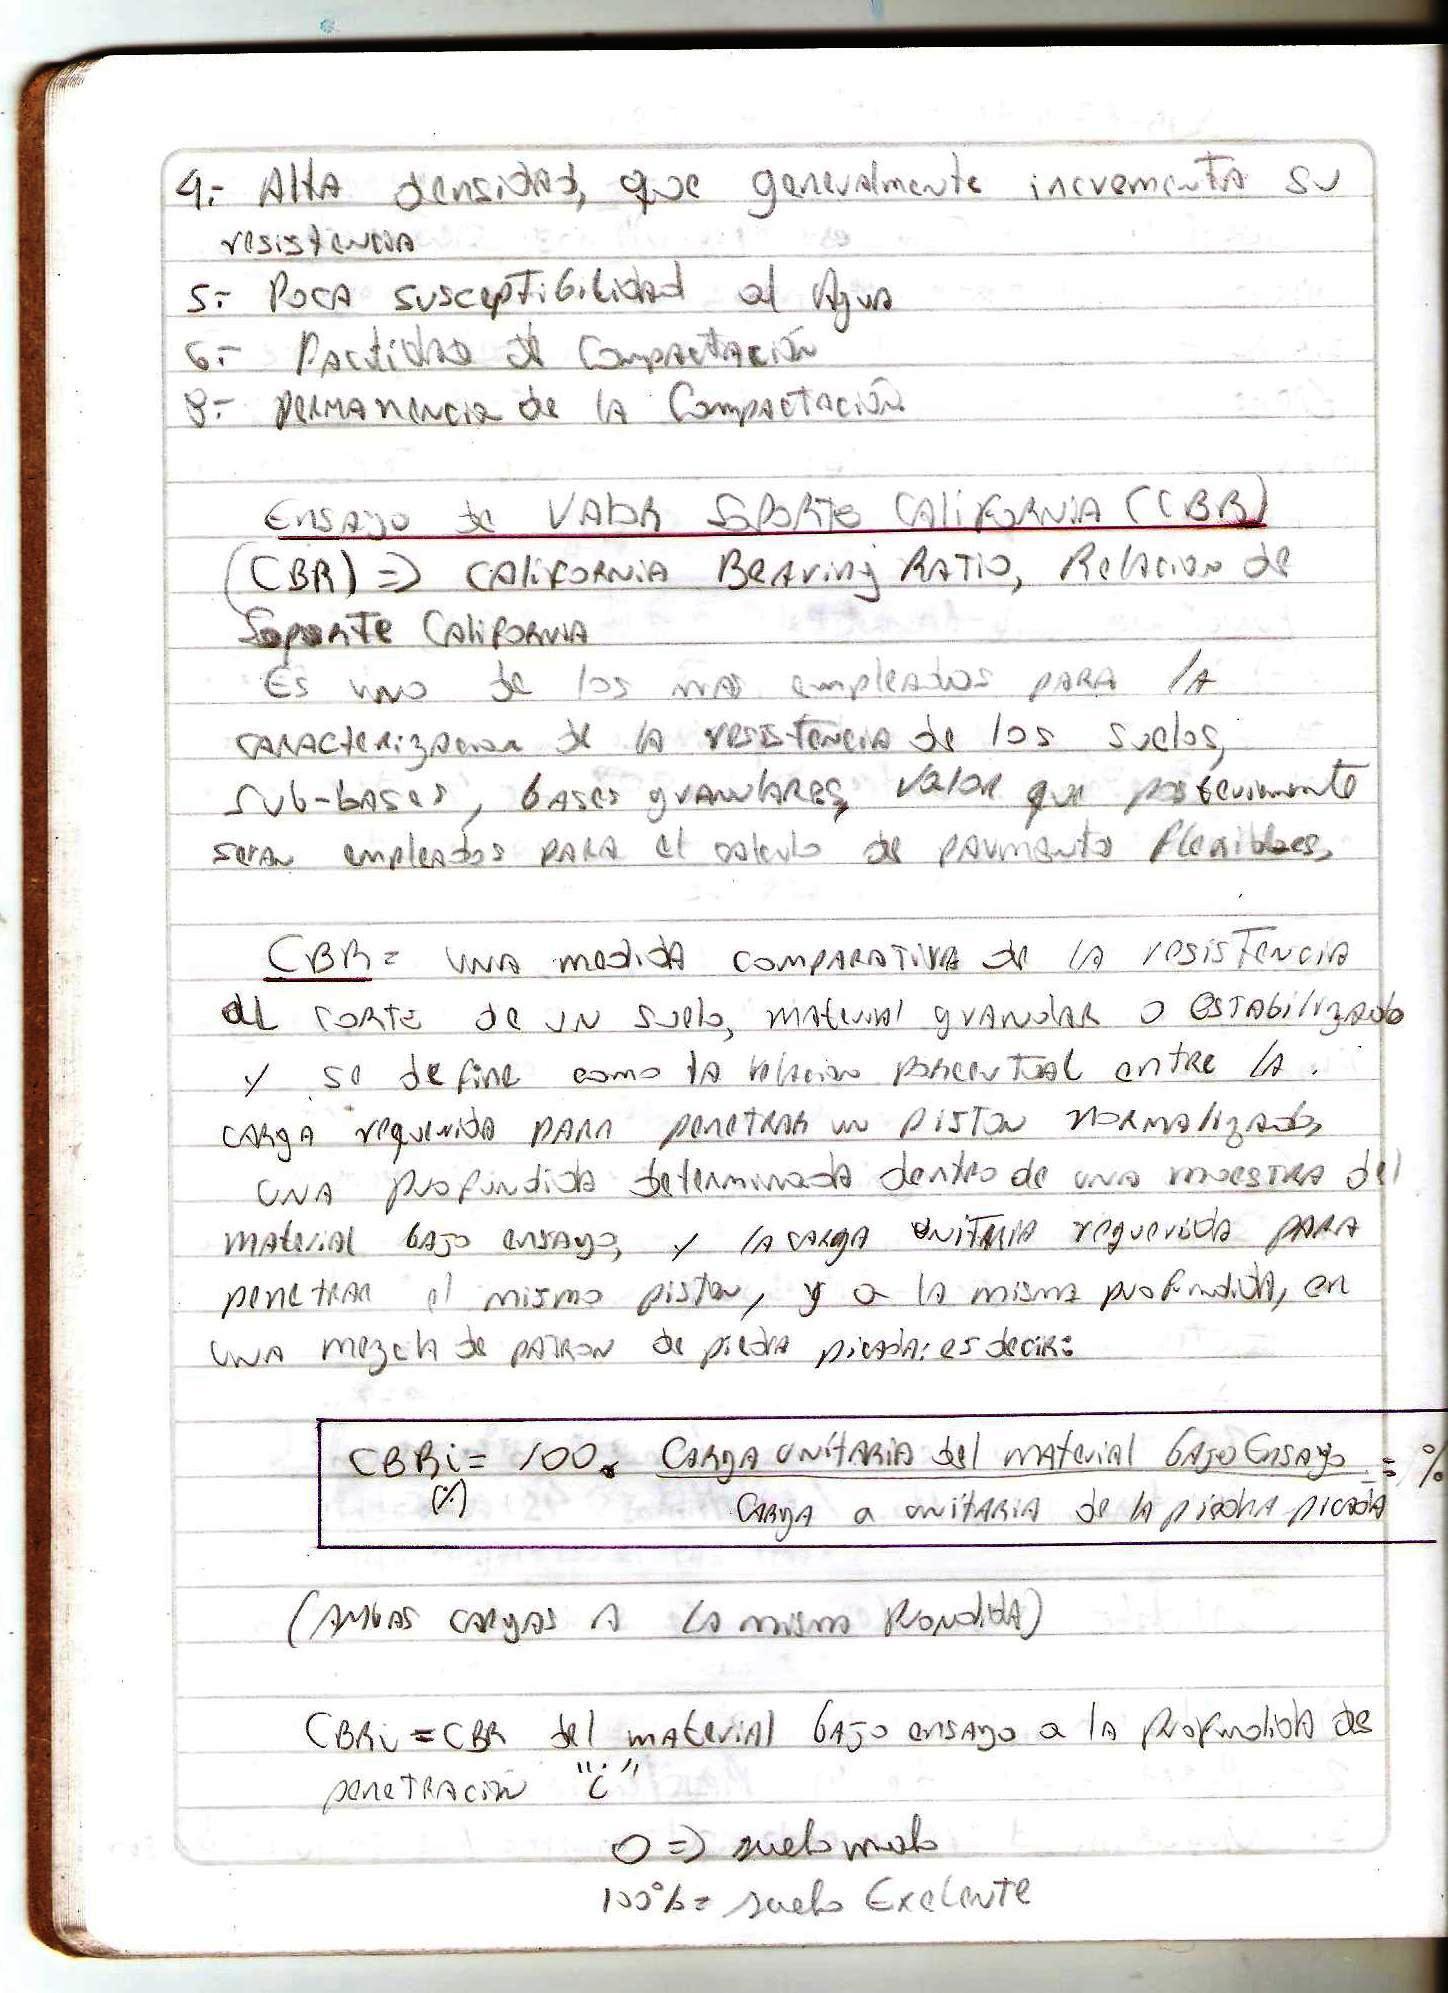 4.- Alta densidad, que generalmente incrementa su
resistencia
5.- Poca susceptibilidad al Agua
6.- de Compactación
8.- permanencia de la Compactación
Ensayo de VAlor SoPorte CAliforniA (CBR)
(CBR) => CAliforniA Bearing RATIO, Relacion de
Soporte CAliforniA
Es uno de los mas empleados para la
caracterizacion de la resistencia de los suelos,
sub-bases, bases granulares, valor que posteriormente
seran empleados para el calculo de pavimento flexibles,
CBR = una medida comparativa de la resistencia
al corte de un suelo, material granular o estabilizado
y se define como la relacion porcentual entre la
carga requerida para penetrar un piston normalizado,
una profundida determinada dentro de una muestra del
material bajo ensayo, y la carga unitaria requerida para
penetrar el mismo piston, y a la misma profundida, en
una mezcla de patron de piedra picada: es decir:
CBRi = 100. Carga unitaria del material bajo Ensayo = %
(%) Carga a unitaria de la piedra picada
(Ambas cargas a la misma prondida)
CBRi = CBR del material bajo ensayo a la profundida de
penetración "i"
0 => suelo malo
100% = suelo Exelente